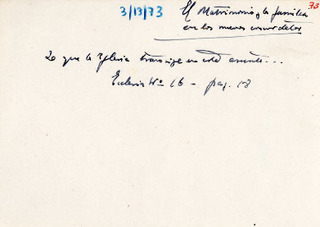 3/13/73
El Matrimonio y la familia 33
en los nuevos
Lo que la Iglesia en este
Ecclesia Nº 16 - pag. 18